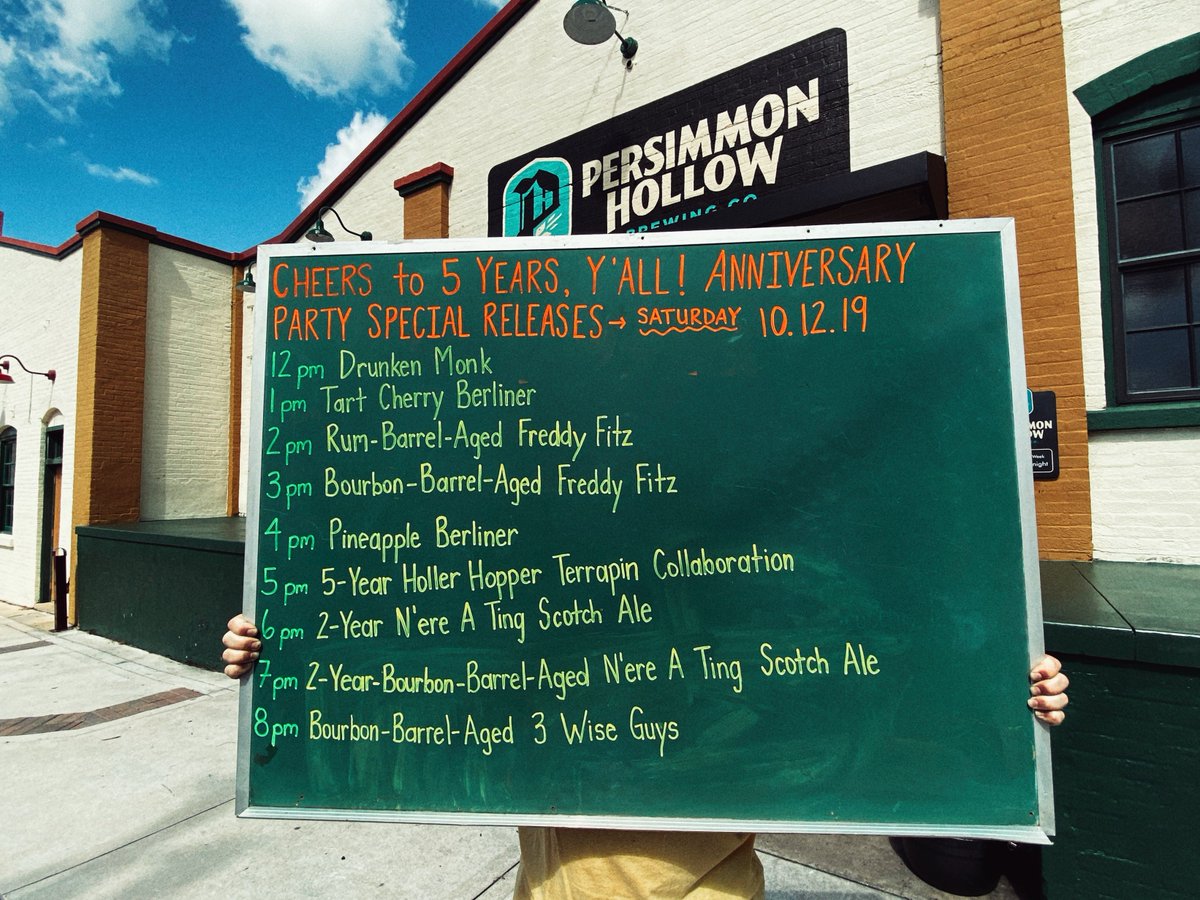 PERSIMMON
HOLLOW
BREWING CO
CHEERS to 5 YEARS, Y'ALL! ANNIVERSARY
PARTY SPECIAL RELEASES→ SATURDAY 10.12.19
12pm Drunken Monk
1pm Tart Cherry Berliner
2pm Rum-Barrel-Aged Freddy Fitz
3pm Bourbon-Barrel-Aged Freddy Fitz
4pm Pineapple Berliner
5pm 5-Year Holler Hopper Terrapin Collaboration
6pm 2-Year N'ere A Ting Scotch Ale
7pm 2-Year-Bourbon-Barrel-Aged N'ere A Ting Scotch Ale
8pm Bourbon-Barrel-Aged 3 Wise Guys
MON
OW
Week
night